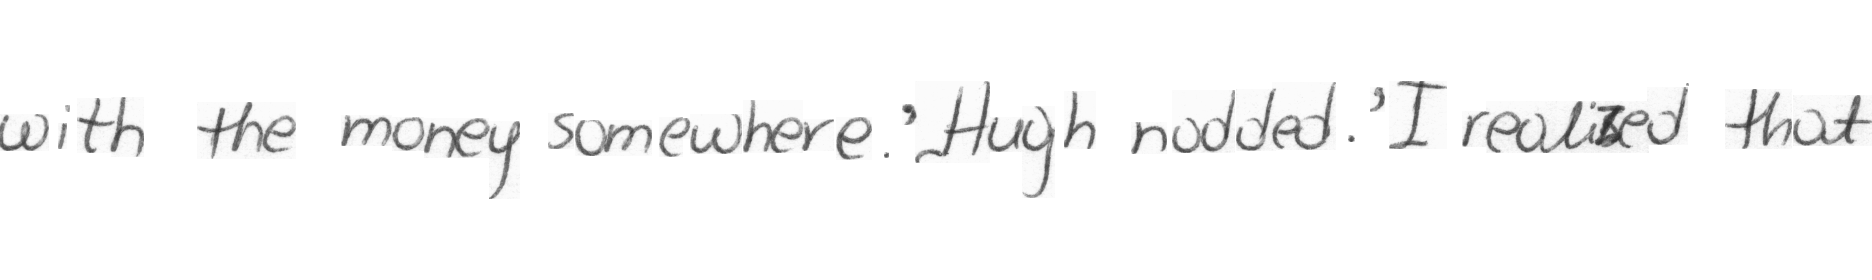 with the money somewhere.' Hugh nodded. 'I realized that